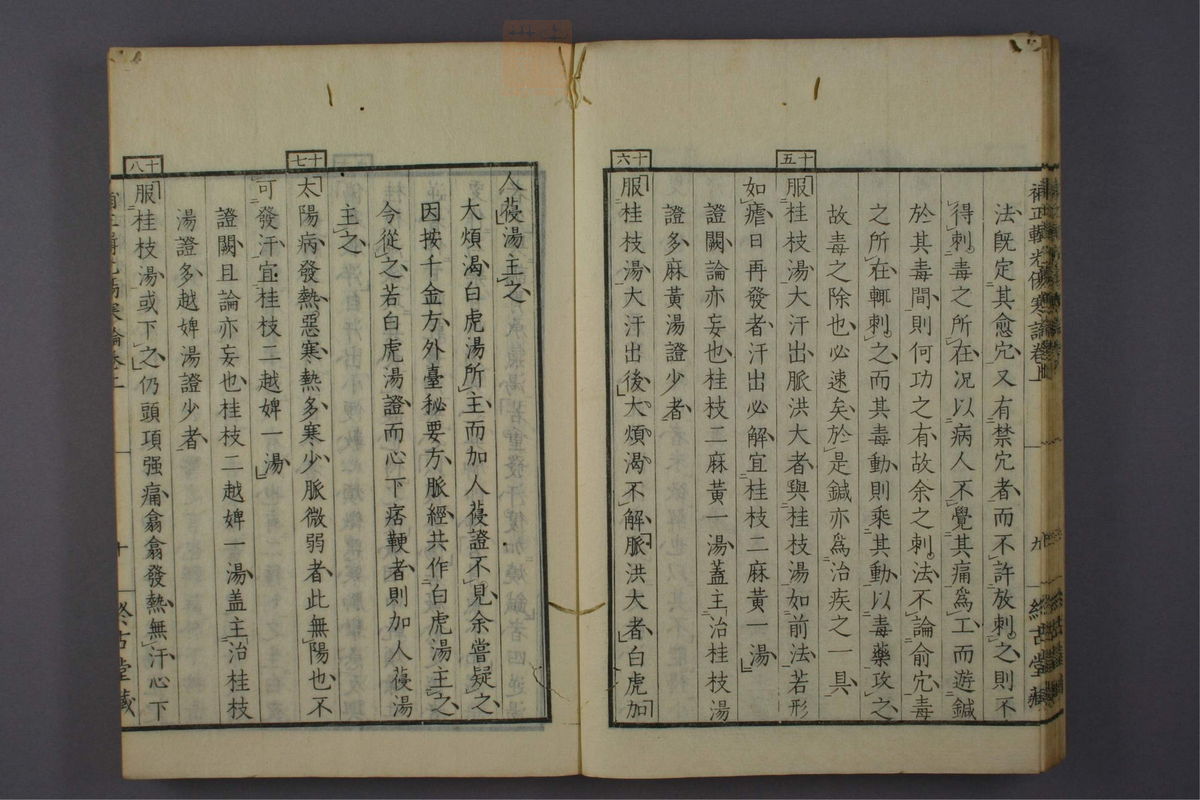 補正輯光傷寒論卷
九
終古堂藏
法既定其愈宂又有禁宂者而不許放刺之則不
得刺毒之所在況以病人不覺其痛爲工而遊鍼
於其毒間則何功之有故余之刺法不論俞宂毒
之所在輒刺之而其毒動則乘其動以毒藥攻之
故毒之除也必速矣於是鍼亦爲治疾之一具
十五
服桂枝湯大汗出脈洪大者與桂枝湯如前法若形
如瘧日再發者汗出必解宜桂枝二麻黃一湯
證闕論亦妄也桂枝二麻黃一湯蓋主治桂枝湯
證多麻黃湯證少者
十六
服桂枝湯大汗出後大煩渴不解脈洪大者白虎加
人葠湯主之
大煩渴白虎湯所主而加人葠證不見余嘗疑之
因按千金方外臺秘要方脈經共作白虎湯主之
今從之若白虎湯證而心下痞鞕者則加人葠湯
主之
十七
太陽病發熱惡寒熱多寒少脈微弱者此無陽也不
可發汗宜桂枝二越婢一湯
證闕且論亦妄也桂枝二越婢一湯盖主治桂枝
湯證多越婢湯證少者
十八
服桂枝湯或下之仍頭項强痛翕翕發熱無汗心下
十
終古堂藏